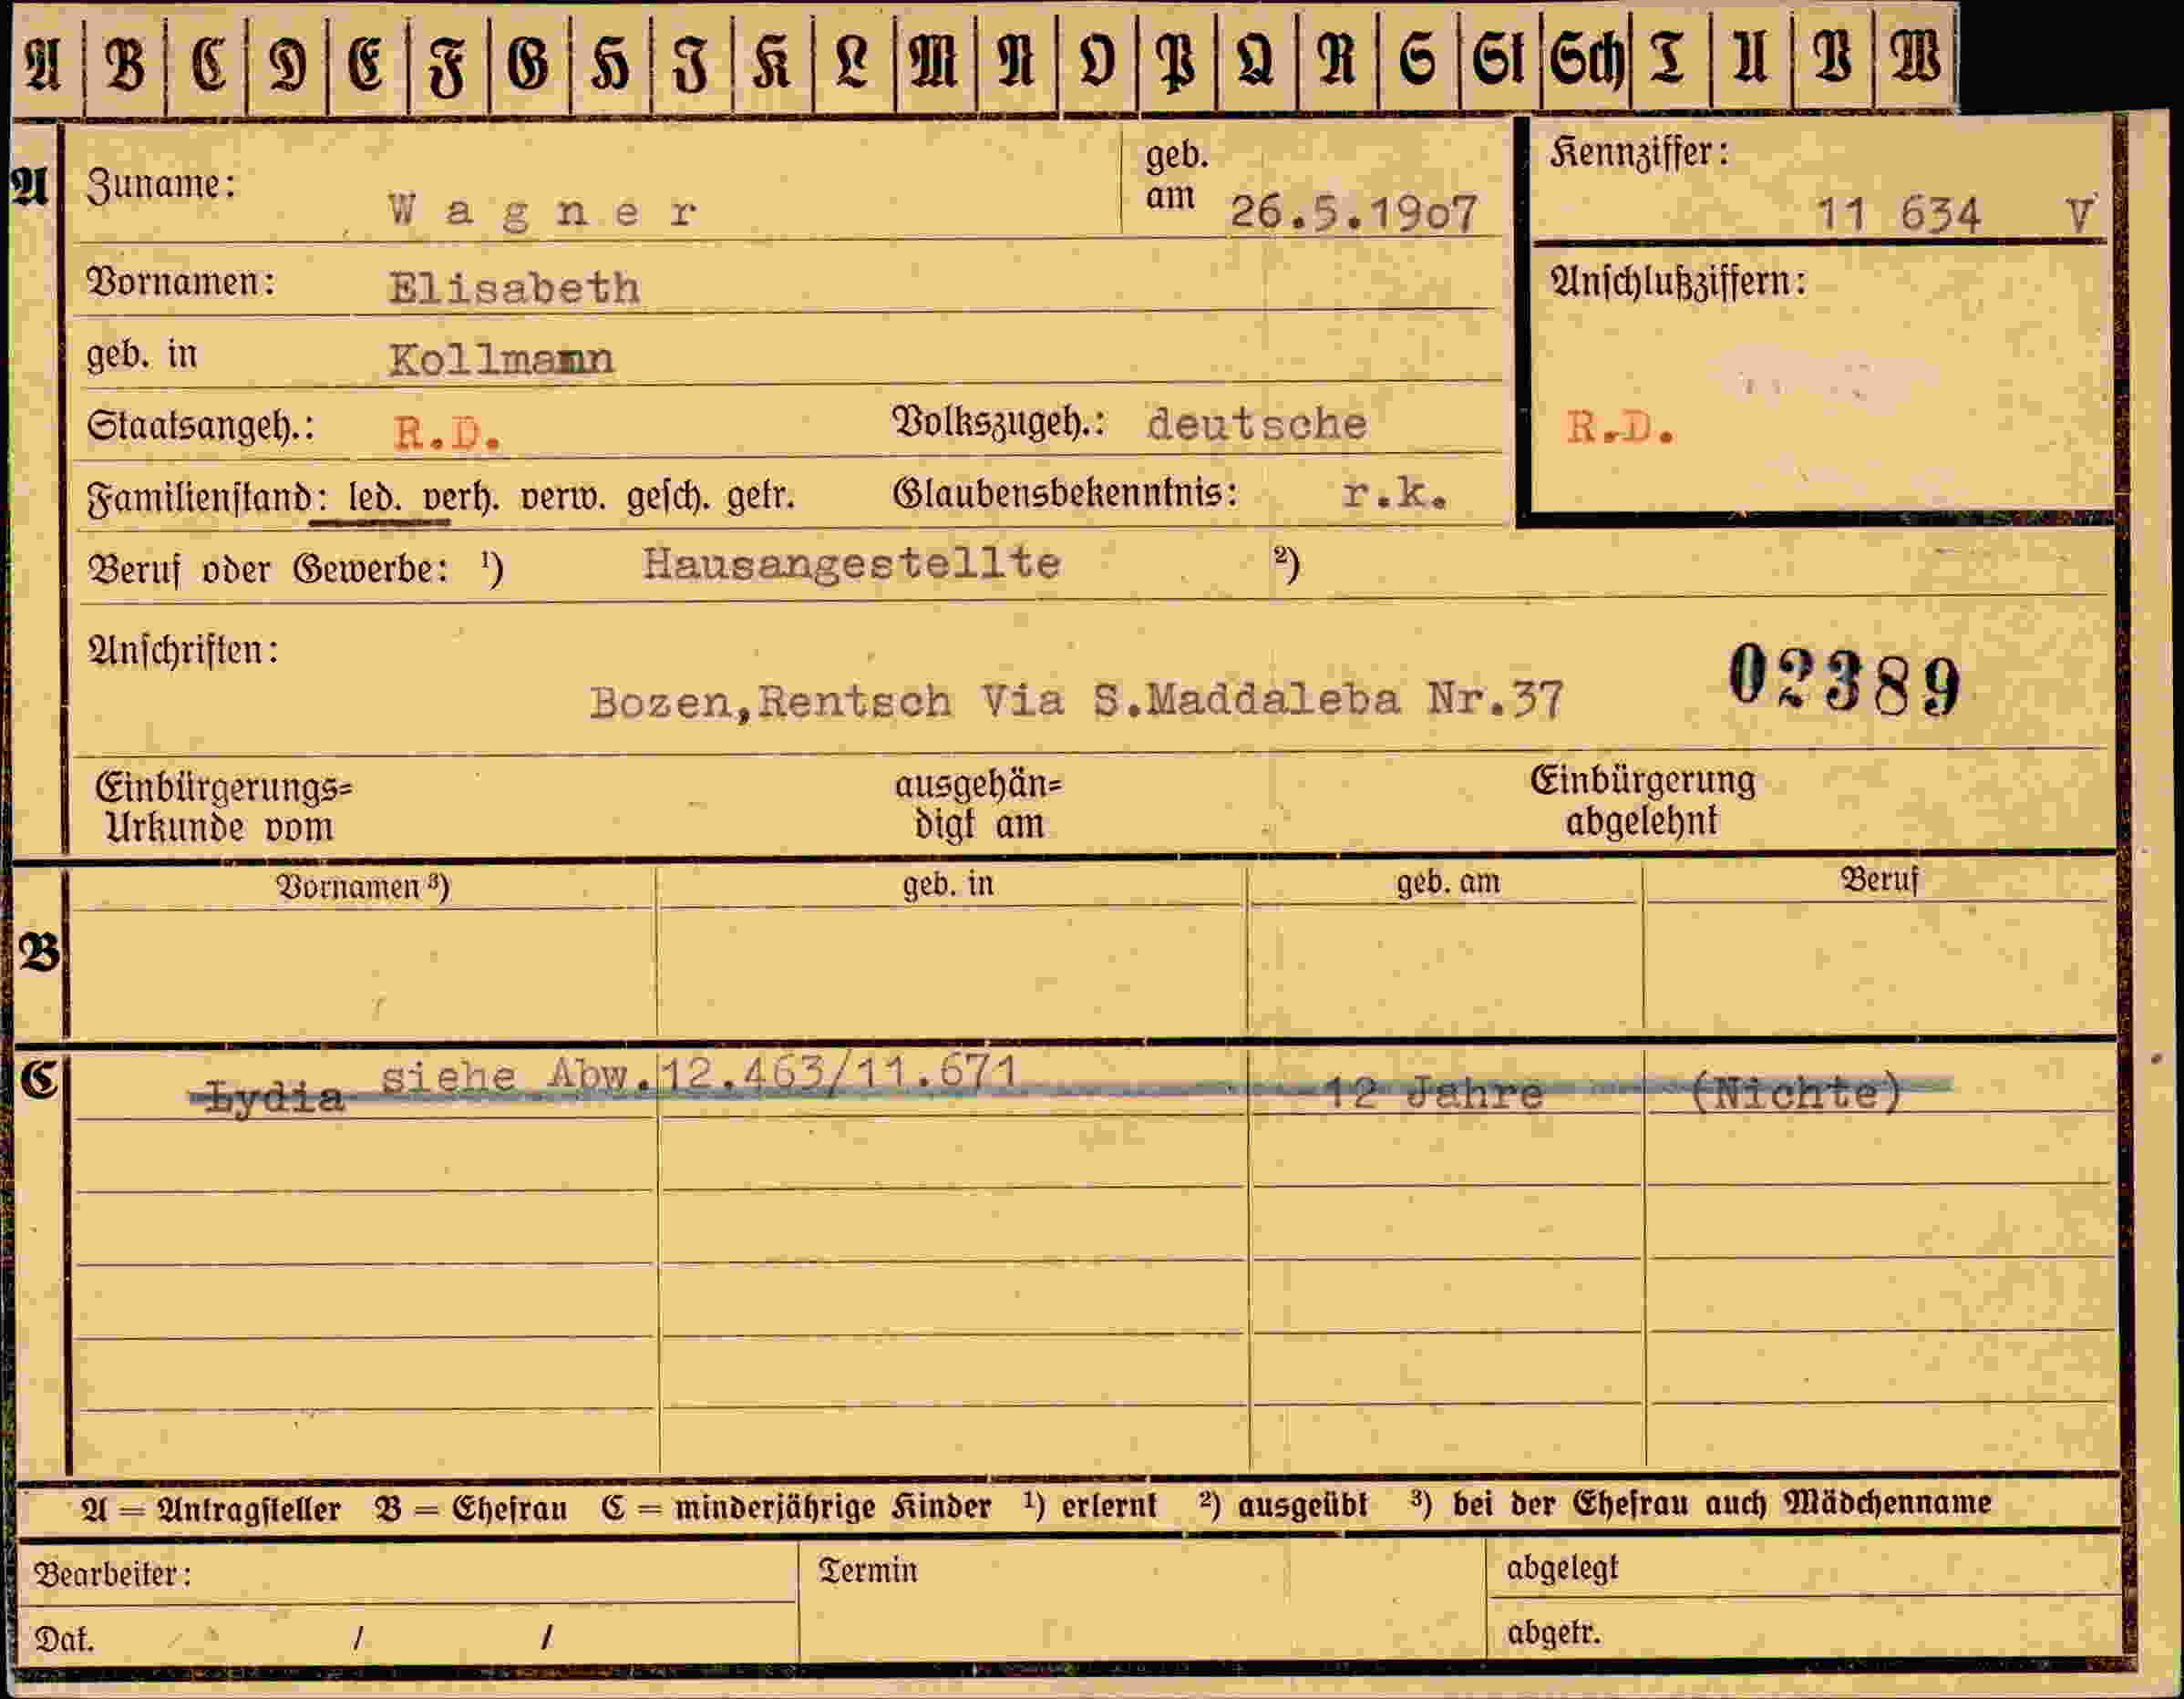 A B C D E F G H I K L M N O P Q R S St Sch T U V W
A Zuname: Wagner geb. am 26.5.19o7 Kennziffer: 11 634 V
Vornamen: Elisabeth Anschlußziffern:
geb. in Kollmann
Staatsangeh.: R.D. Volkszugeh.: deutsche R.D.
Familienstand: led. verh. verw. gesch. getr. Glaubensbekenntnis: r.k.
Beruf oder Gewerbe: ¹) Hausangestellte ²)
Anschriften:
Bozen,Rentsch Via S.Maddaleba Nr.37 02389
Einbürgerungs= ausgehän= Einbürgerung
Urkunde vom digt am abgelehnt
Vornamen ³) geb. in geb. am Beruf
B
C Lydia siehe Abw.12.463/11.671 12 Jahre (Nichte)
A = Antragsteller B = Ehefrau C = minderjährige Kinder ¹) erlernt ²) ausgeübt ³) bei der Ehefrau auch Mädchenname
Bearbeiter: Termin abgelegt
Dat. / / abgetr.